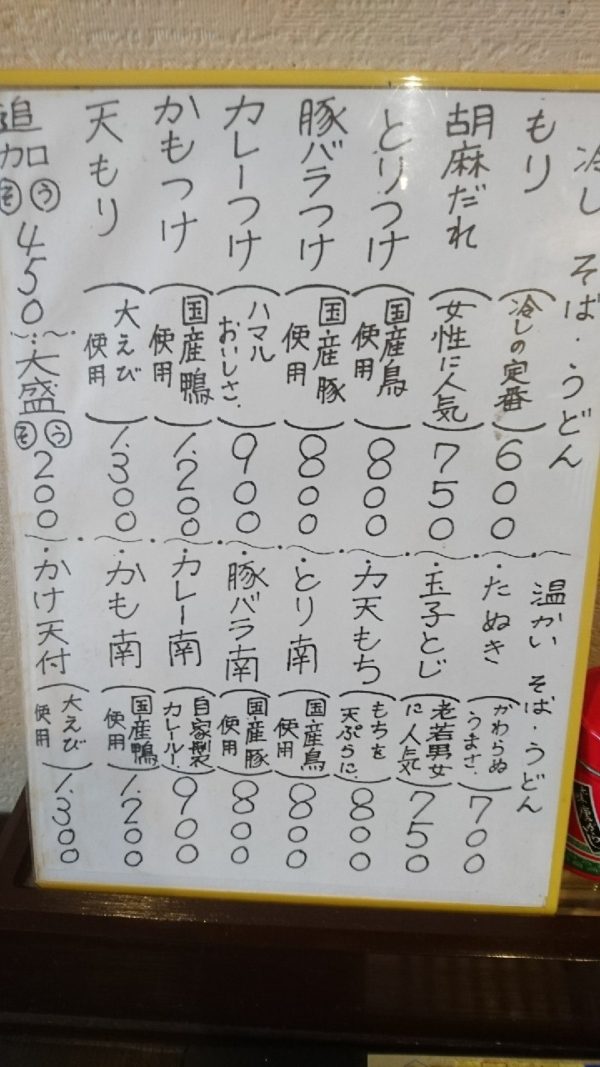 冷し そば・うどん
もり（冷しの定番）600
胡麻だれ（女性に人気）750
とりつけ（国産鳥使用）800
豚バラつけ（国産豚使用）800
カレーつけ（ハマルおいしさ.）900
かもつけ（国産鴨使用）1.200
天もり（大えび使用）1.300
追加そう450
大盛そう200
温かい そば・うどん
・たぬき（かわらぬうまさ.）700
・玉子とじ（老若男女に人気）750
・力天もち（もちを天ぷらに.）800
・とり南（国産鳥使用）800
・豚バラ南（国産豚使用）800
・カレー南（自家製カレールー.）900
・かも南（国産鴨使用）1.200
・かけ天付（大えび使用）1.300